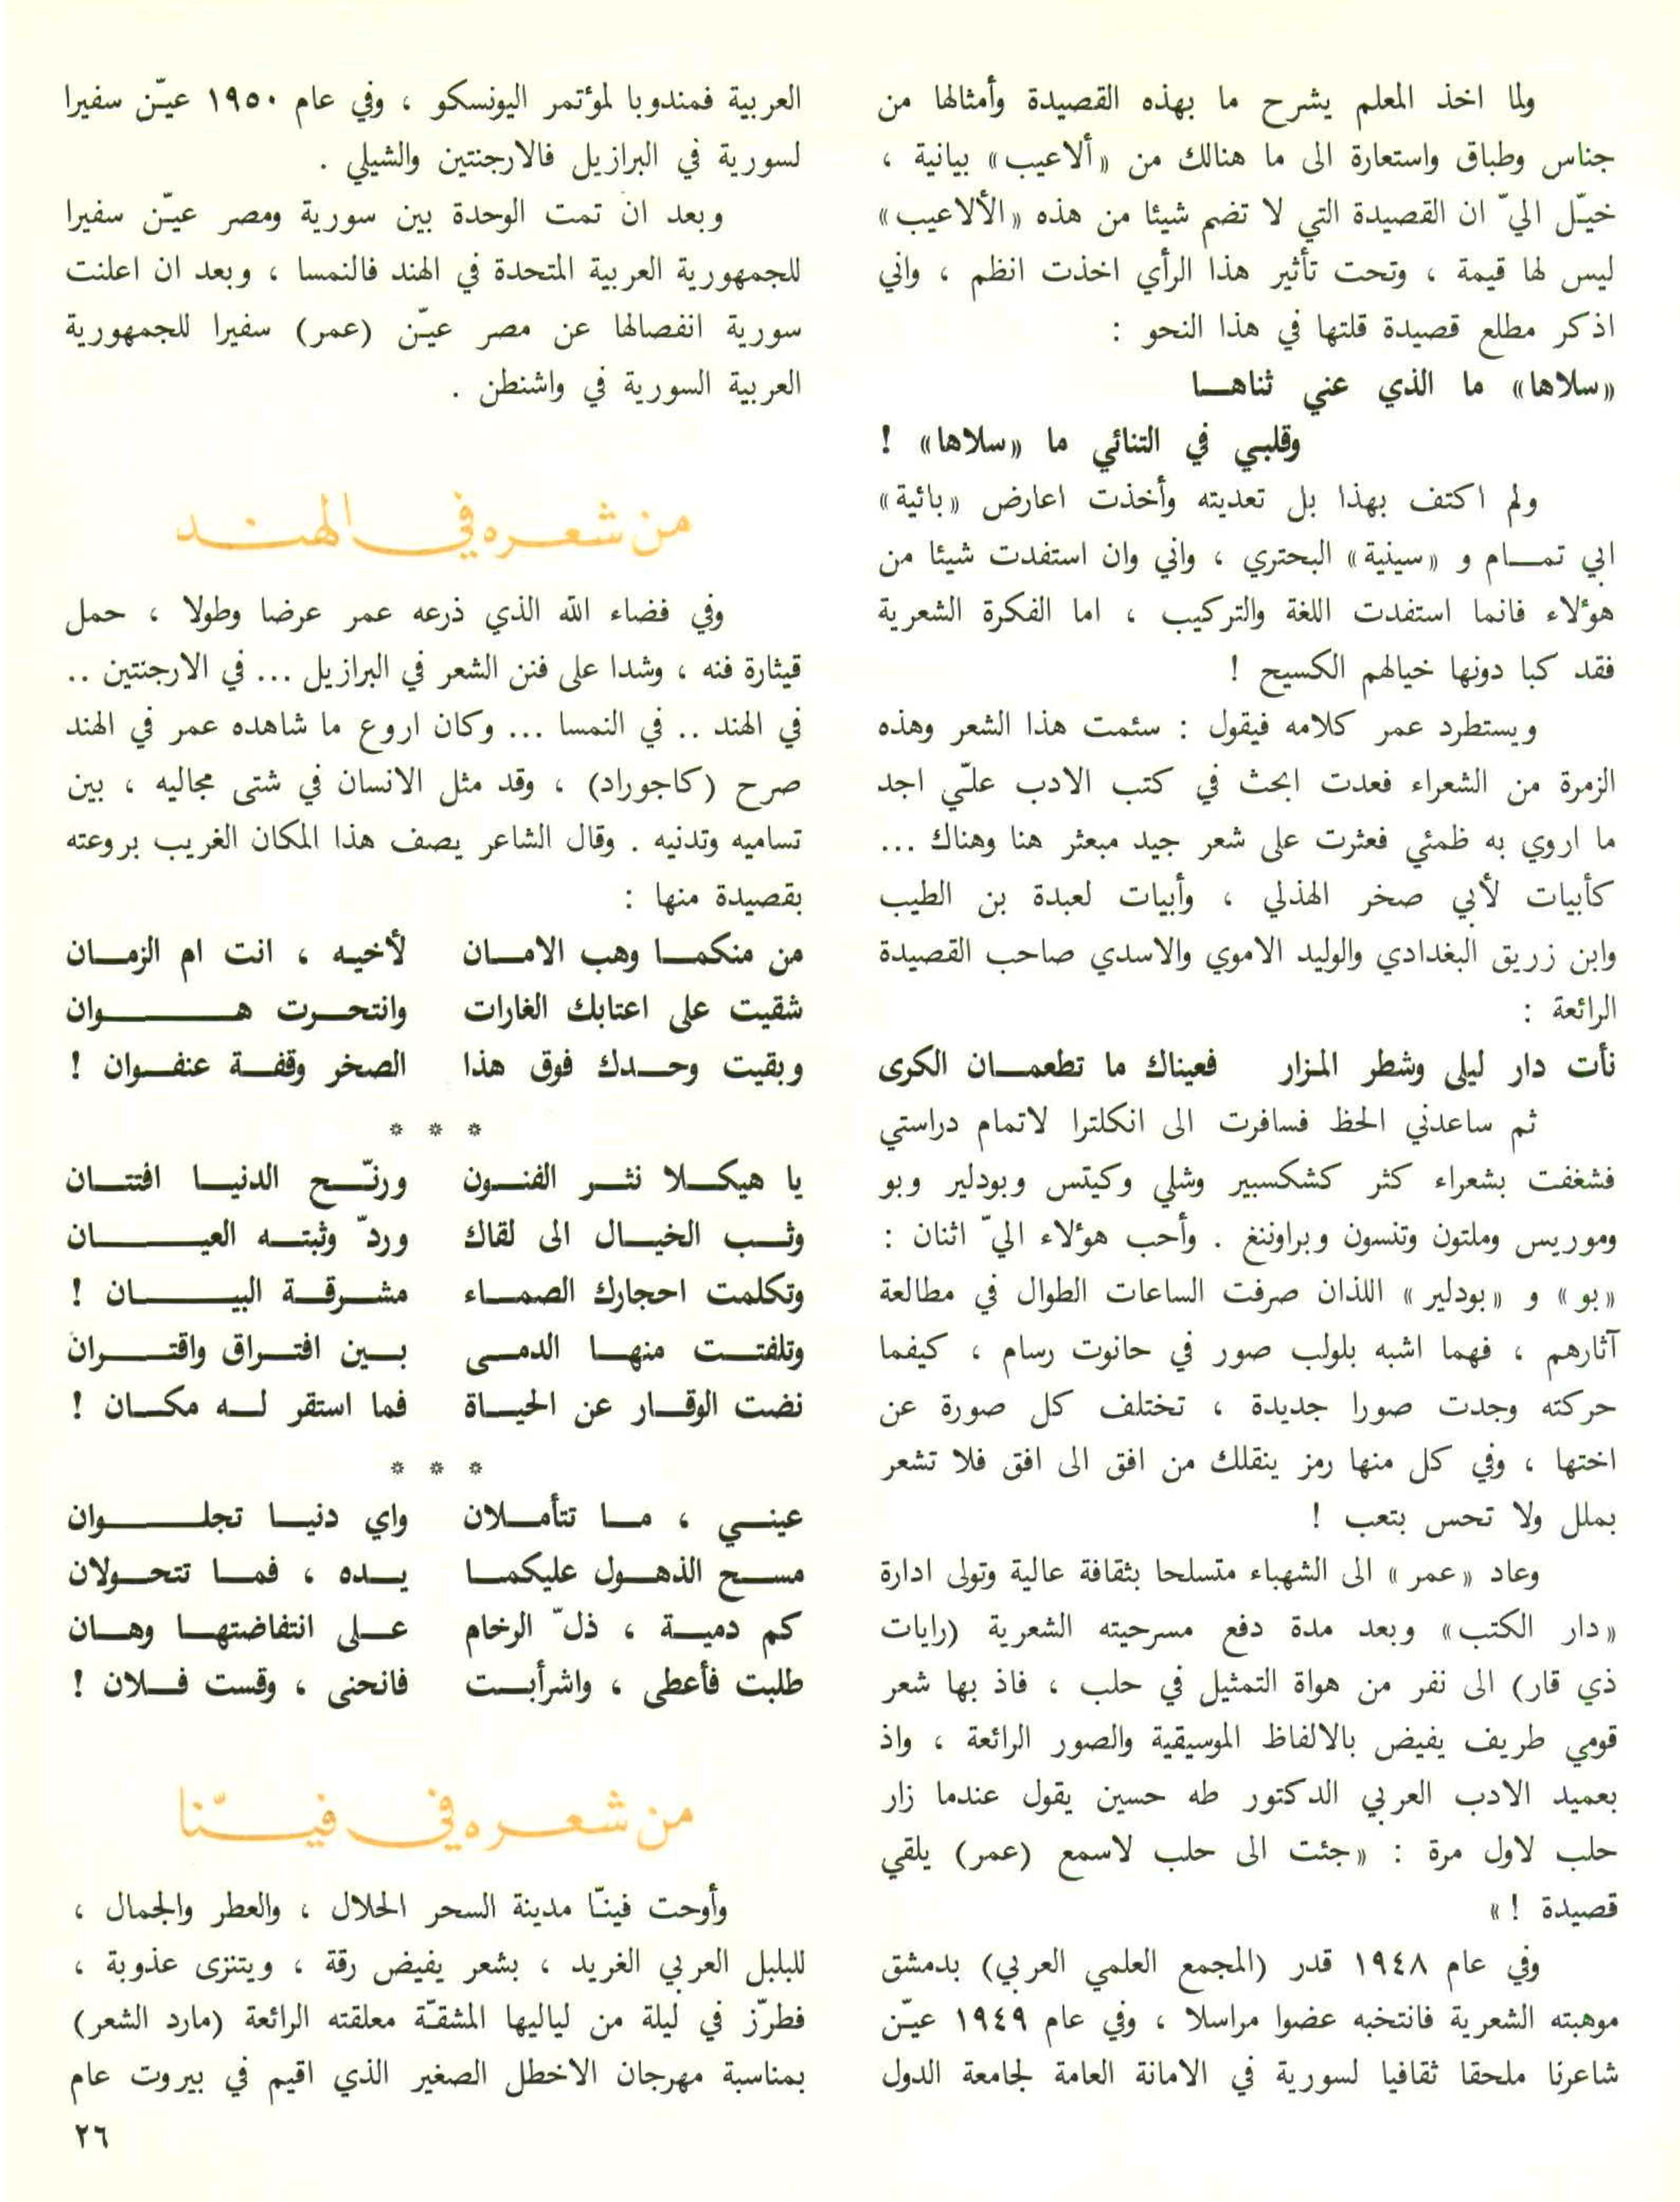 ولما اخذ المعلم يشرح ما بهذه القصيدة وأمثالها من
جناس وطباق واستعارة الى ما هنالك من «ألاعيب» بيانية ،
خيّل اليّ ان القصيدة التي لا تضم شيئا من هذه «الألاعيب»
ليس لها قيمة ، وتحت تأثير هذا الرأي اخذت انظم ، واني
اذكر مطلع قصيدة قلتها في هذا النحو :
«سلاها» ما الذي عني ثناهـــا
وقلبـي في التنائي ما «سلاها» !
ولم اكتف بهذا بل تعديته وأخذت اعارض «بائية»
ابي تمـــام و «سينية» البحتري ، واني وان استفدت شيئا من
هؤلاء فانما استفدت اللغة والتركيب ، اما الفكرة الشعرية
فقد كبا دونها خيالهم الكسيح !
ويستطرد عمر كلامه فيقول : سئمت هذا الشعر وهذه
الزمرة من الشعراء فعدت ابحث في كتب الادب علّي اجد
ما اروي به ظمئي فعثرت على شعر جيد مبعثر هنا وهناك ...
كأبيات لأبي صخر الهذلي ، وأبيات لعبدة بن الطيب
وابن زريق البغدادي والوليد الاموي والاسدي صاحب القصيدة
الرائعة :
نأت دار ليلى وشطر المـزار فعيناك ما تطعمـــان الكرى
ثم ساعدني الحظ فسافرت الى انكلترا لاتمام دراستي
فشغفت بشعراء كثر كشكسبير وشلي وكيتس وبودلير وبو
وموريس وملتون وتنسون وبراوننغ . وأحب هؤلاء اليّ اثنان :
«بو» و «بودلير» اللذان صرفت الساعات الطوال في مطالعة
آثارهم ، فهما اشبه بلولب صور في حانوت رسام ، كيفما
حركته وجدت صورا جديدة ، تختلف كل صورة عن
اختها ، وفي كل منها رمز ينقلك من افق الى افق فلا تشعر
بملل ولا تحس بتعب !
وعاد «عمر» الى الشهباء متسلحا بثقافة عالية وتولى ادارة
«دار الكتب» وبعد مدة دفع مسرحيته الشعرية (رايات
ذي قار) الى نفر من هواة التمثيل في حلب ، فاذ بها شعر
قومي طريف يفيض بالالفاظ الموسيقية والصور الرائعة ، واذ
بعميد الادب العربي الدكتور طه حسين يقول عندما زار
حلب لاول مرة : «جئت الى حلب لاسمع (عمر) يلقي
قصيدة ! »
وفي عام ١٩٤٨ قدر (المجمع العلمي العربي) بدمشق
موهبته الشعرية فانتخبه عضوا مراسلا ، وفي عام ١٩٤٩ عيّن
شاعرنا ملحقا ثقافيا لسورية في الامانة العامة لجامعة الدول
العربية فمندوبا لمؤتمر اليونسكو ، وفي عام ١٩٥٠ عيّن سفيرا
لسورية في البرازيل فالارجنتين والشيلي .
وبعد ان تمت الوحدة بين سورية ومصر عيّن سفيرا
للجمهورية العربية المتحدة في الهند فالنمسا ، وبعد ان اعلنت
سورية انفصالها عن مصر عيّن (عمر) سفيرا للجمهورية
العربية السورية في واشنطن .
من شعره في الهند
وفي فضاء الله الذي ذرعه عمر عرضا وطولا ، حمل
قيثارة فنه ، وشدا على فنن الشعر في البرازيل ... في الارجنتين ..
في الهند .. في النمسا ... وكان اروع ما شاهده عمر في الهند
صرح (كاجوراد) ، وقد مثل الانسان في شتى مجاليه ، بين
تساميه وتدنيه . وقال الشاعر يصف هذا المكان الغريب بروعته
بقصيدة منها :
من منكمـــا وهب الامـــان لأخيـه ، انت ام الزمـــان
شقيت على اعتابك الغارات وانتحـــرت هـــوان
وبقيت وحـــدك فوق هذا الصخر وقفـــة عنفـــوان !
* * *
يا هيكـــلا نثـــر الفنـــون ورنّـــح الدنيـــا افتتـــان
وثـــب الخيـــال الى لقاك وردّ وثبتـــه العيـــان
وتكلمت احجارك الصمـــاء مشـــرقـــة البيـــان !
وتلفتـــت منهـــا الدمـــى بـــين افتـــراق واقتـــران
نضت الوقـــار عن الحيـــاة فما استقر لـــه مكـــان !
* * *
عينـــي ، مـــا تتأمـــلان واي دنيـــا تجلـــوان
مســـح الذهـــول عليكمـــا يـــده ، فمـــا تتحـــولان
كم دميـــة ، ذلّ الرخام عـــلى انتفاضتهـــا وهـــان
طلبت فأعطى ، واشرأبـــت فانحنى ، وقست فـــلان !
من شعره في فيـنّا
وأوحت فينّا مدينة السحر الحلال ، والعطر والجمال ،
للبلبل العربي الغريد ، بشعر يفيض رقة ، ويتنزى عذوبة ،
فطرّز في ليلة من لياليها المشقّة معلقته الرائعة (مارد الشعر)
بمناسبة مهرجان الاخطل الصغير الذي اقيم في بيروت عام
٢٦